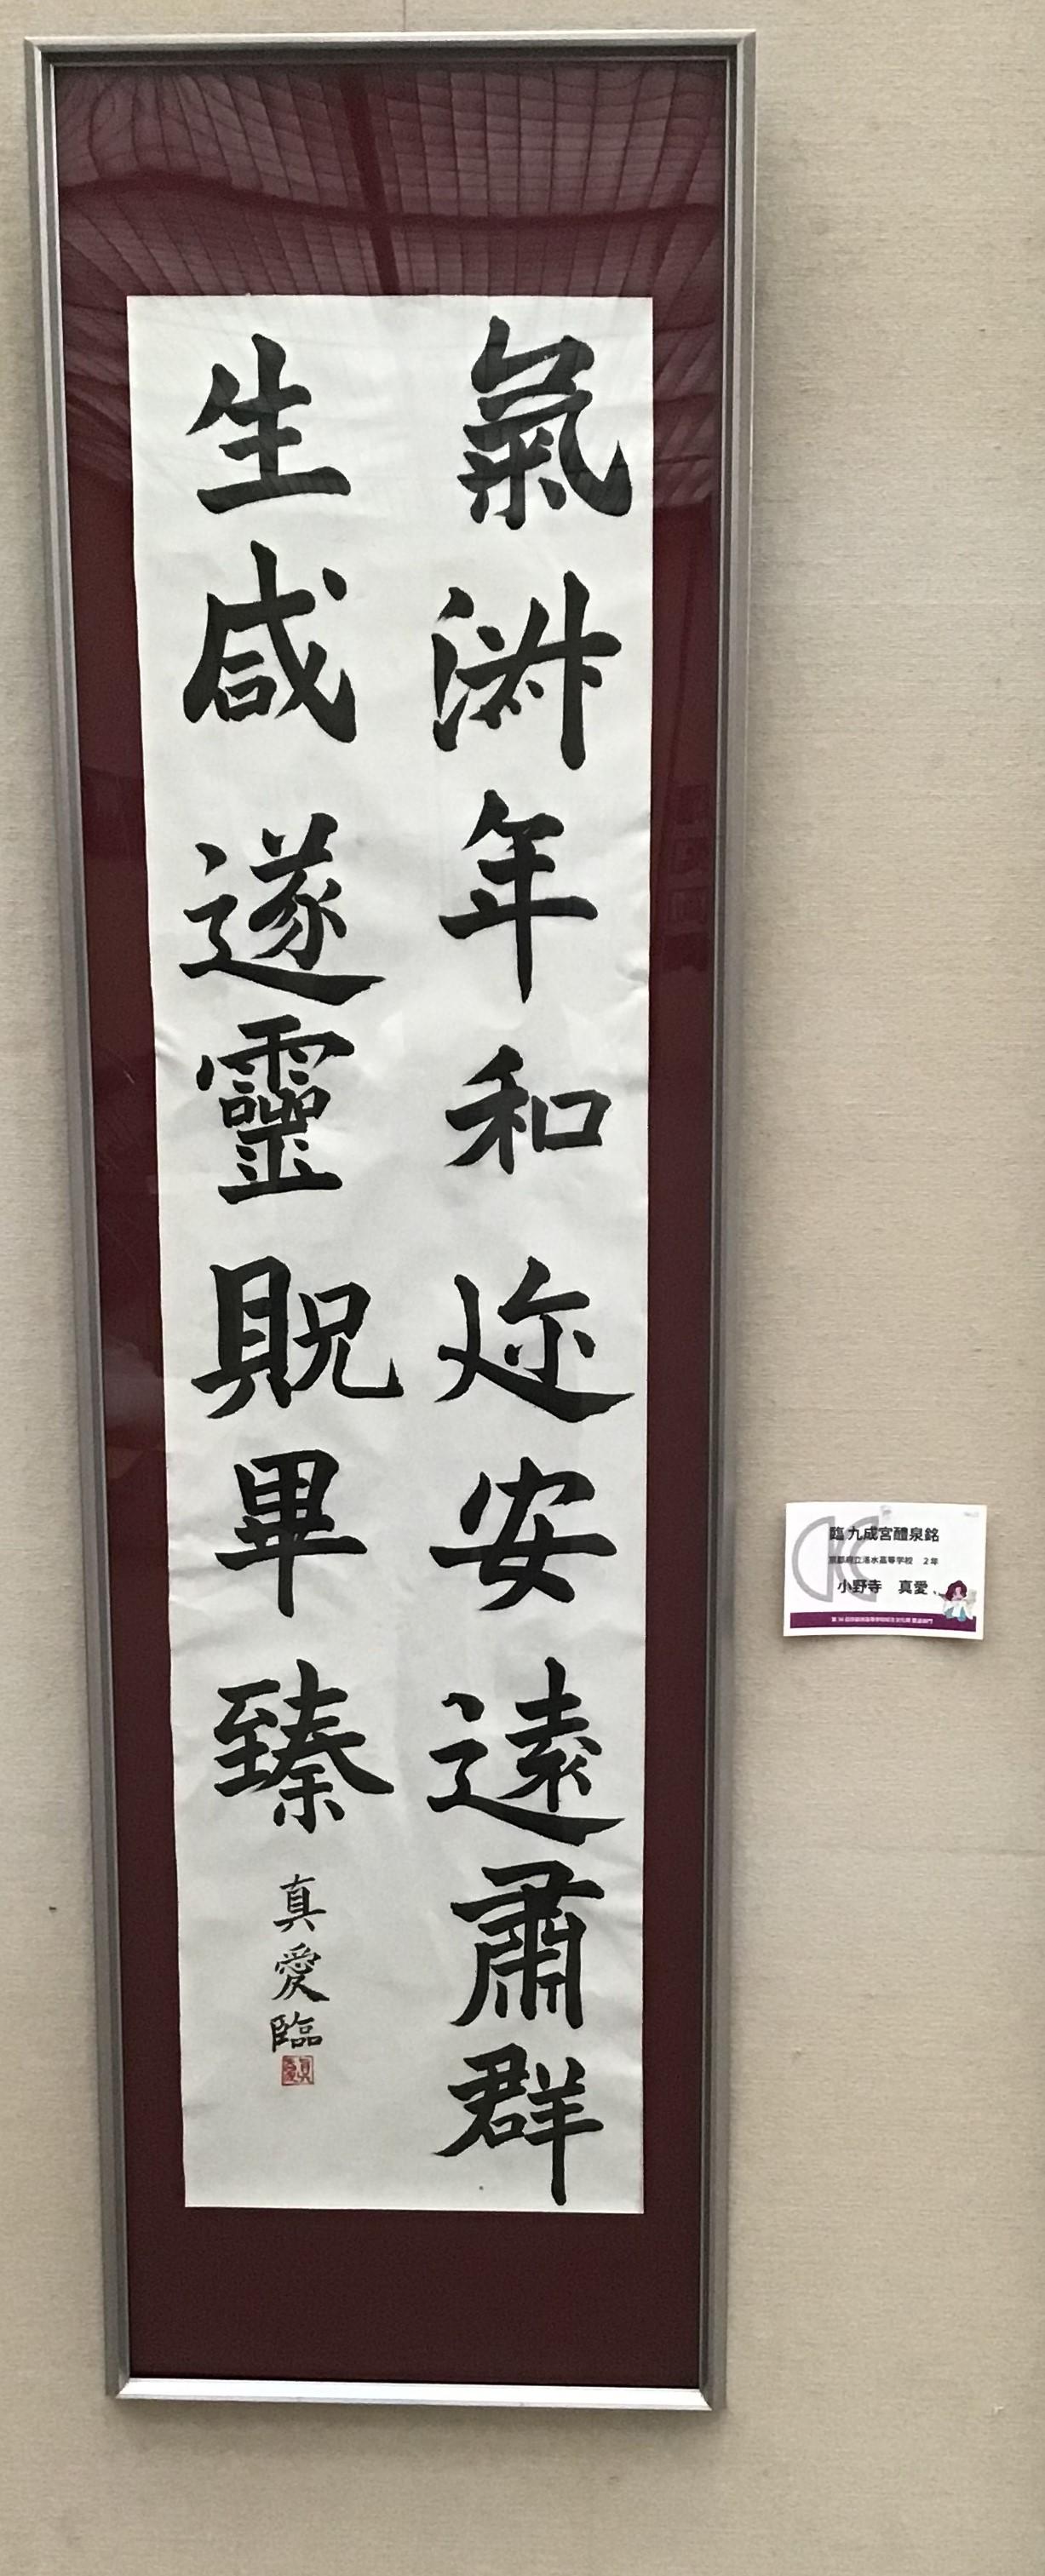 氣淑年和迩安遠肅群
生咸遂靈貺畢臻
真愛臨
臨 九成宮醴泉銘
京都府立洛水高等学校　2年
小野寺　真愛